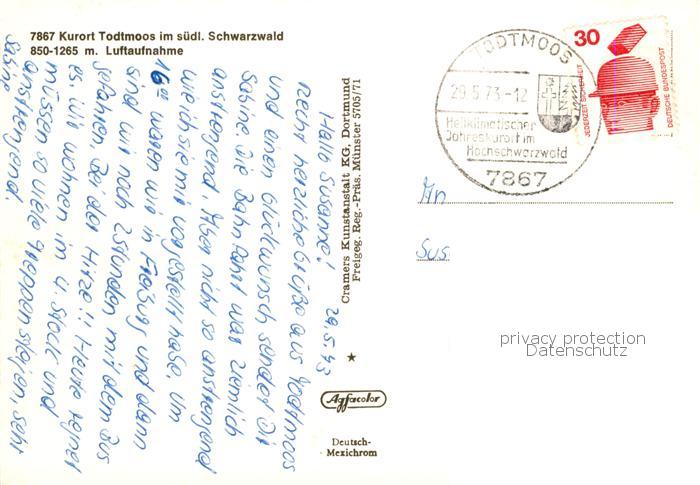 7867 Kurort Todtmoos im südl. Schwarzwald
850-1265 m. Luftaufnahme
29.5.73
Hallo Susanne!
Recht herzliche Grüße aus Todtmoos
und einen Glückwunsch sendet Dir
Sabine. Die Bahnfahrt war ziemlich
anstrengend. Aber nicht so anstrengend
wie ich sie mir vorgestellt habe. Um
16 00 waren wir in Freiburg und dann
sind wir noch 2 Stunden mit dem Bus
gefahren. Bei der Hitze!! Heute regnet
es. Wir wohnen im 4. Stock und
müssen so viele Treppen steigen, sehr
anstrengend.
Sabine
Cramers Kunstanstalt KG. Dortmund
Freigeg. Reg.-Präs. Münster 5705/71
Agfacolor
Deutsch-
Mexichrom
TODTMOOS
29.5.73-12
Heilklimatischer
Jahreskurort im
Hochschwarzwald
7867
30
JEDERZEIT SICHERHEIT
DEUTSCHE BUNDESPOST
An
Sus
privacy protection
Datenschutz